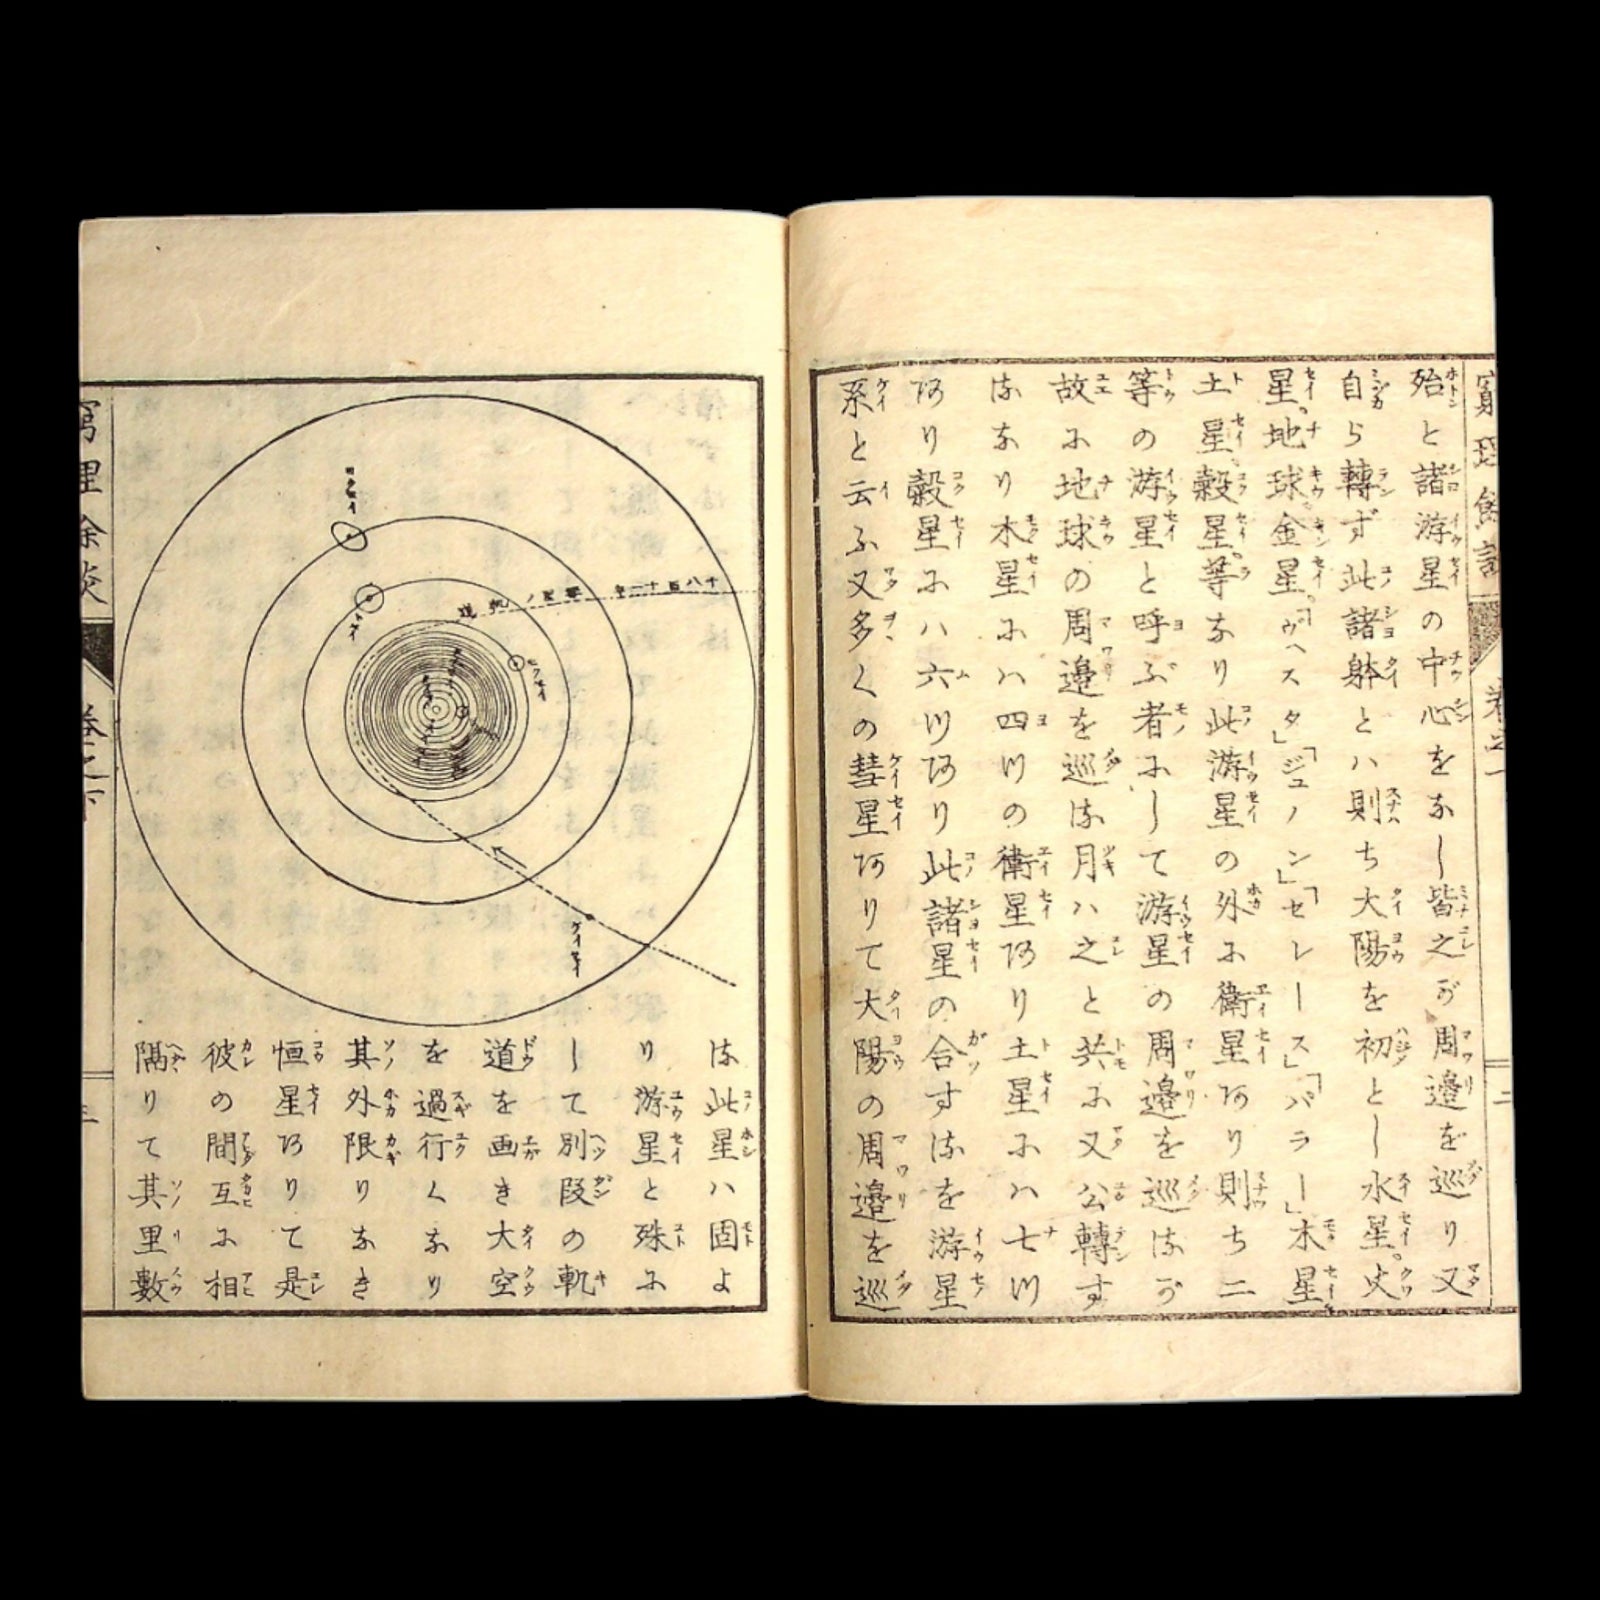 殆と諸游星の中心をなし皆之が周邉を巡り又
自ら轉ず此諸躰とハ則ち大陽を初とし水星。火
星。地球。金星。「ヴヘスタ」「ジュノン」「セレース」「パラー」木星。
土星。穀星。等なり此游星の外に衛星あり則ち二
等の游星と呼ぶ者にして游星の周邉を巡るが
故に地球の周邉を巡る月ハ之と共に又公轉す
るなり木星にハ四ツの衛星あり土星にハ七ツ
あり穀星にハ六ツあり此諸星の合するを游星
系と云ふ又多くの彗星ありて大陽の周邉を巡
窮理餘談
卷之下
三
十八百十一年彗星ノ軌道
ケイセイ
る此星ハ固よ
り游星と殊に
して別段の軌
道を画き大空
を過行くなり
其外限りなき
恒星ありて是
彼の間互に相
隔りて其里數